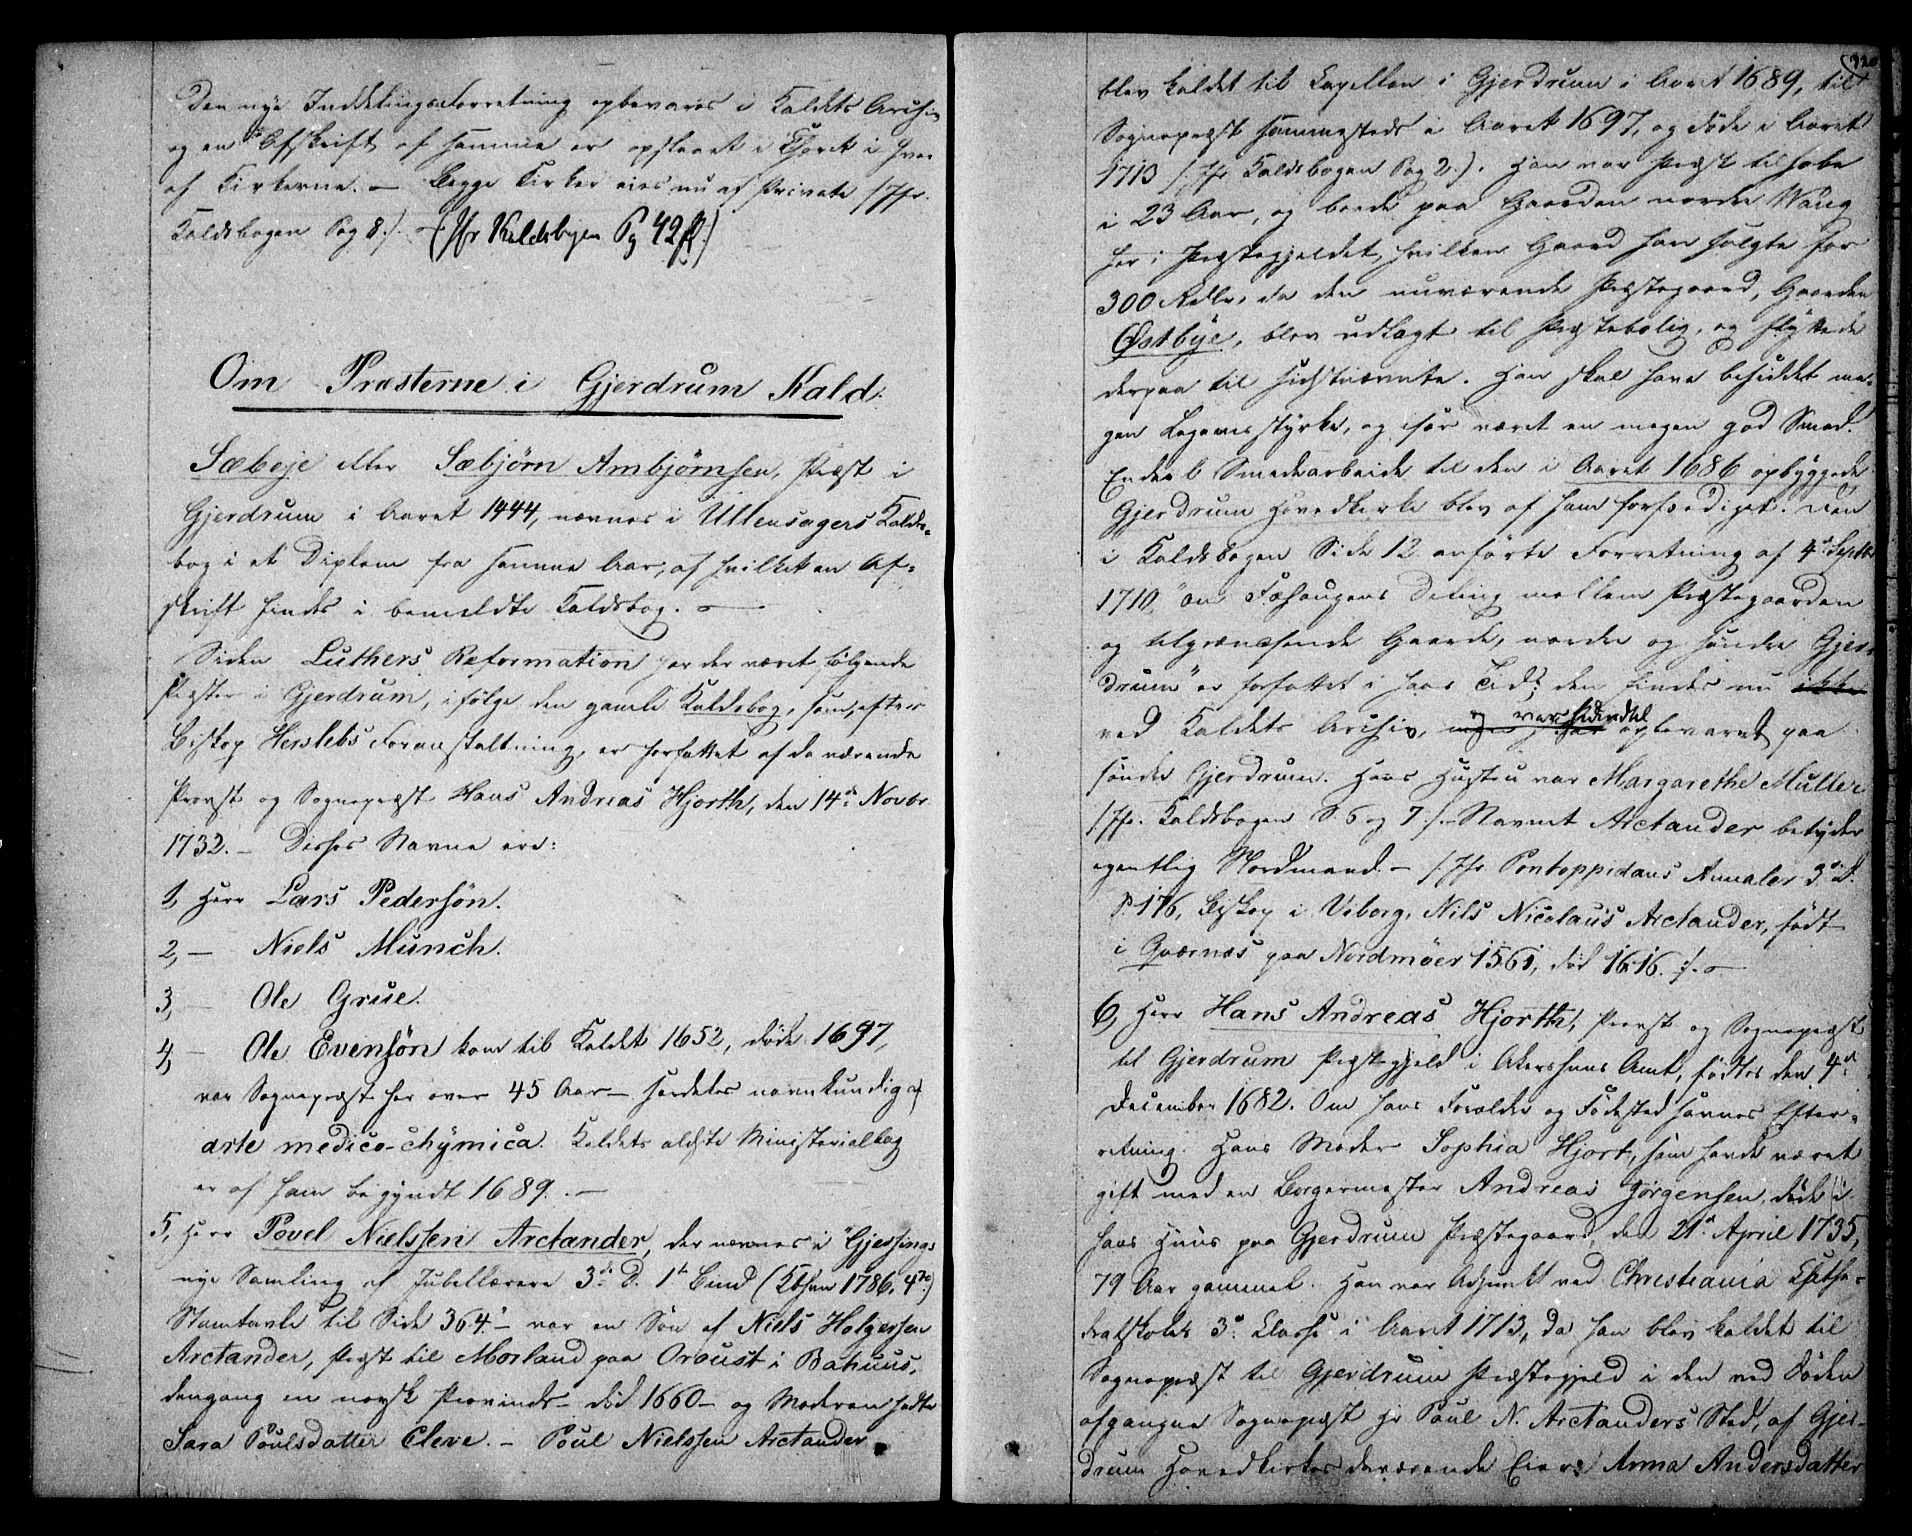 Den nye Inddelingsforretning opbevares i Kaldets Archiv
og en Afskrift af samme er opslaaet i Choret i hver
af Kirkerne. – Begge Kirker eies nu af Private /: Jfr.
Kaldsbogen Pag 8 :/. – (Jfr Kaldsbogen Pg 42 ff.)
Om Præsterne i Gjerdrum Kald.
Sæbeje eller Sæbjørn Ambjørnsen, Præst i
Gjerdrum i Aaret 1444, nævnes i Ullensagers Kalds-
bog i et Diplom fra samme Aar, af hvilket en Af-
skrift findes i bemeldte Kaldsbog. –
Siden Luthers Reformation har der været følgende
Præster i Gjerdrum, ifølge den gamle Kaldsbog, som, efter
Biskop Herslebs Foranstaltning, er forfattet af daværende
Provst og Sognepræst Hans Andreas Hjorth, den 14de Novbr
1732. – Disses Navne ere:
1, Herr Lars Pedersøn.
2, – Niels Munch.
3, – Ole Grue.
4, – Ole Evensøn kom til Kaldet 1652, døde 1697,
var Sognepræst her over 45 Aar – særdeles navnkundig af
arte medico-chymica. Kaldets ældste Ministerialbog
er af ham begyndt 1689. –
5, Herr Povel Nielssen Arctander, der nævnes i "Gjessings
nye Samling af Jubellærere 3die D. 1ste Bind (Kbhvn 1786, 4to)
Stamtavle til Side 364" – var en Søn af Niels Holgersen
Arctander, Præst til Morland paa Oroust i Bahuus,
dengang en norsk Provinds – død 1660 – og Moderen hedte
Sara Poulsdatter Cleve. – Poul Nielssen Arctander
320
blev kaldet til Capellan i Gjerdrum i Aaret 1689, til
Sognepræst sammesteds i Aaret 1697, og døde i Aaret
1713 /: Jfr Kaldsbogen Pag 2 :/. Han var Præst tilsobe
i 23 Aar, og boede paa Gaarden nordre Waug
her i Præstegjeldet, hvilken Gaard han solgte for
300 Rdlr, da den nuværende Præstegaard, Gaarden
Østbye, blev udlagt til Præstebolig, og flyttede
derpaa til sidstnævnte. Han skal have besiddet me-
gen Legemsstyrke, og især været en megen god Smed.
Endeel Smedearbeide til den i Aaret 1686 opbyggede
Gjerdrum Hovedkirke blev af ham forfærdiget. Den
i Kaldsbogen Side 12 anførte Forretning af 4de Septbr
1710, "om Fæhaugens Deling mellem Præstegaarden
og tilgrændsende Gaarde, nordre og søndre Gjer-
drum" er forfattet i hans Tid; den findes nu ikke
ved Kaldets Archiv, og var hidindtil opbevaret paa
søndre Gjerdrum. Hans Hustru var Margarethe Muller
/: Jfr. Kaldsbogen S. 6 og 7 :/ – Navnet Arctander betyder
egentlig Nordmand – /: Jfr Pontoppidans Annaler 3die D.
P. 176, Biskop i Viborg, Nils Nicolaus Arctander, født
i Qværnæs paa Nordmøer 1561, død 1616. :/. –
6, Herr Hans Andreas Hjorth, Provst og Sognepræst
til Gjerdrum Præstegjeld i Akershuus Amt, fødtes den 4de
December 1682. Om hans Forældre og Fødested savnes Efter-
retning. Hans Moder Sophia Hjort, som havde været
gift med en Borgermester Andreas Jørgensen, døde i
hans Huus paa Gjerdrum Præstegaard, den 21de April 1735,
79 Aar gammel. Han var Adjunkt ved Christiania Cathe-
dralskoles 3die Classe i Aaret 1713, da han blev kaldet til
Sognepræst til Gjerdrum Præstegjeld i den ved Døden
afgangne Sognepræst Hr Poul N. Arctanders Sted, af Gjer-
drum Hovedkirkes daværende Eier: Anna Andersdatter